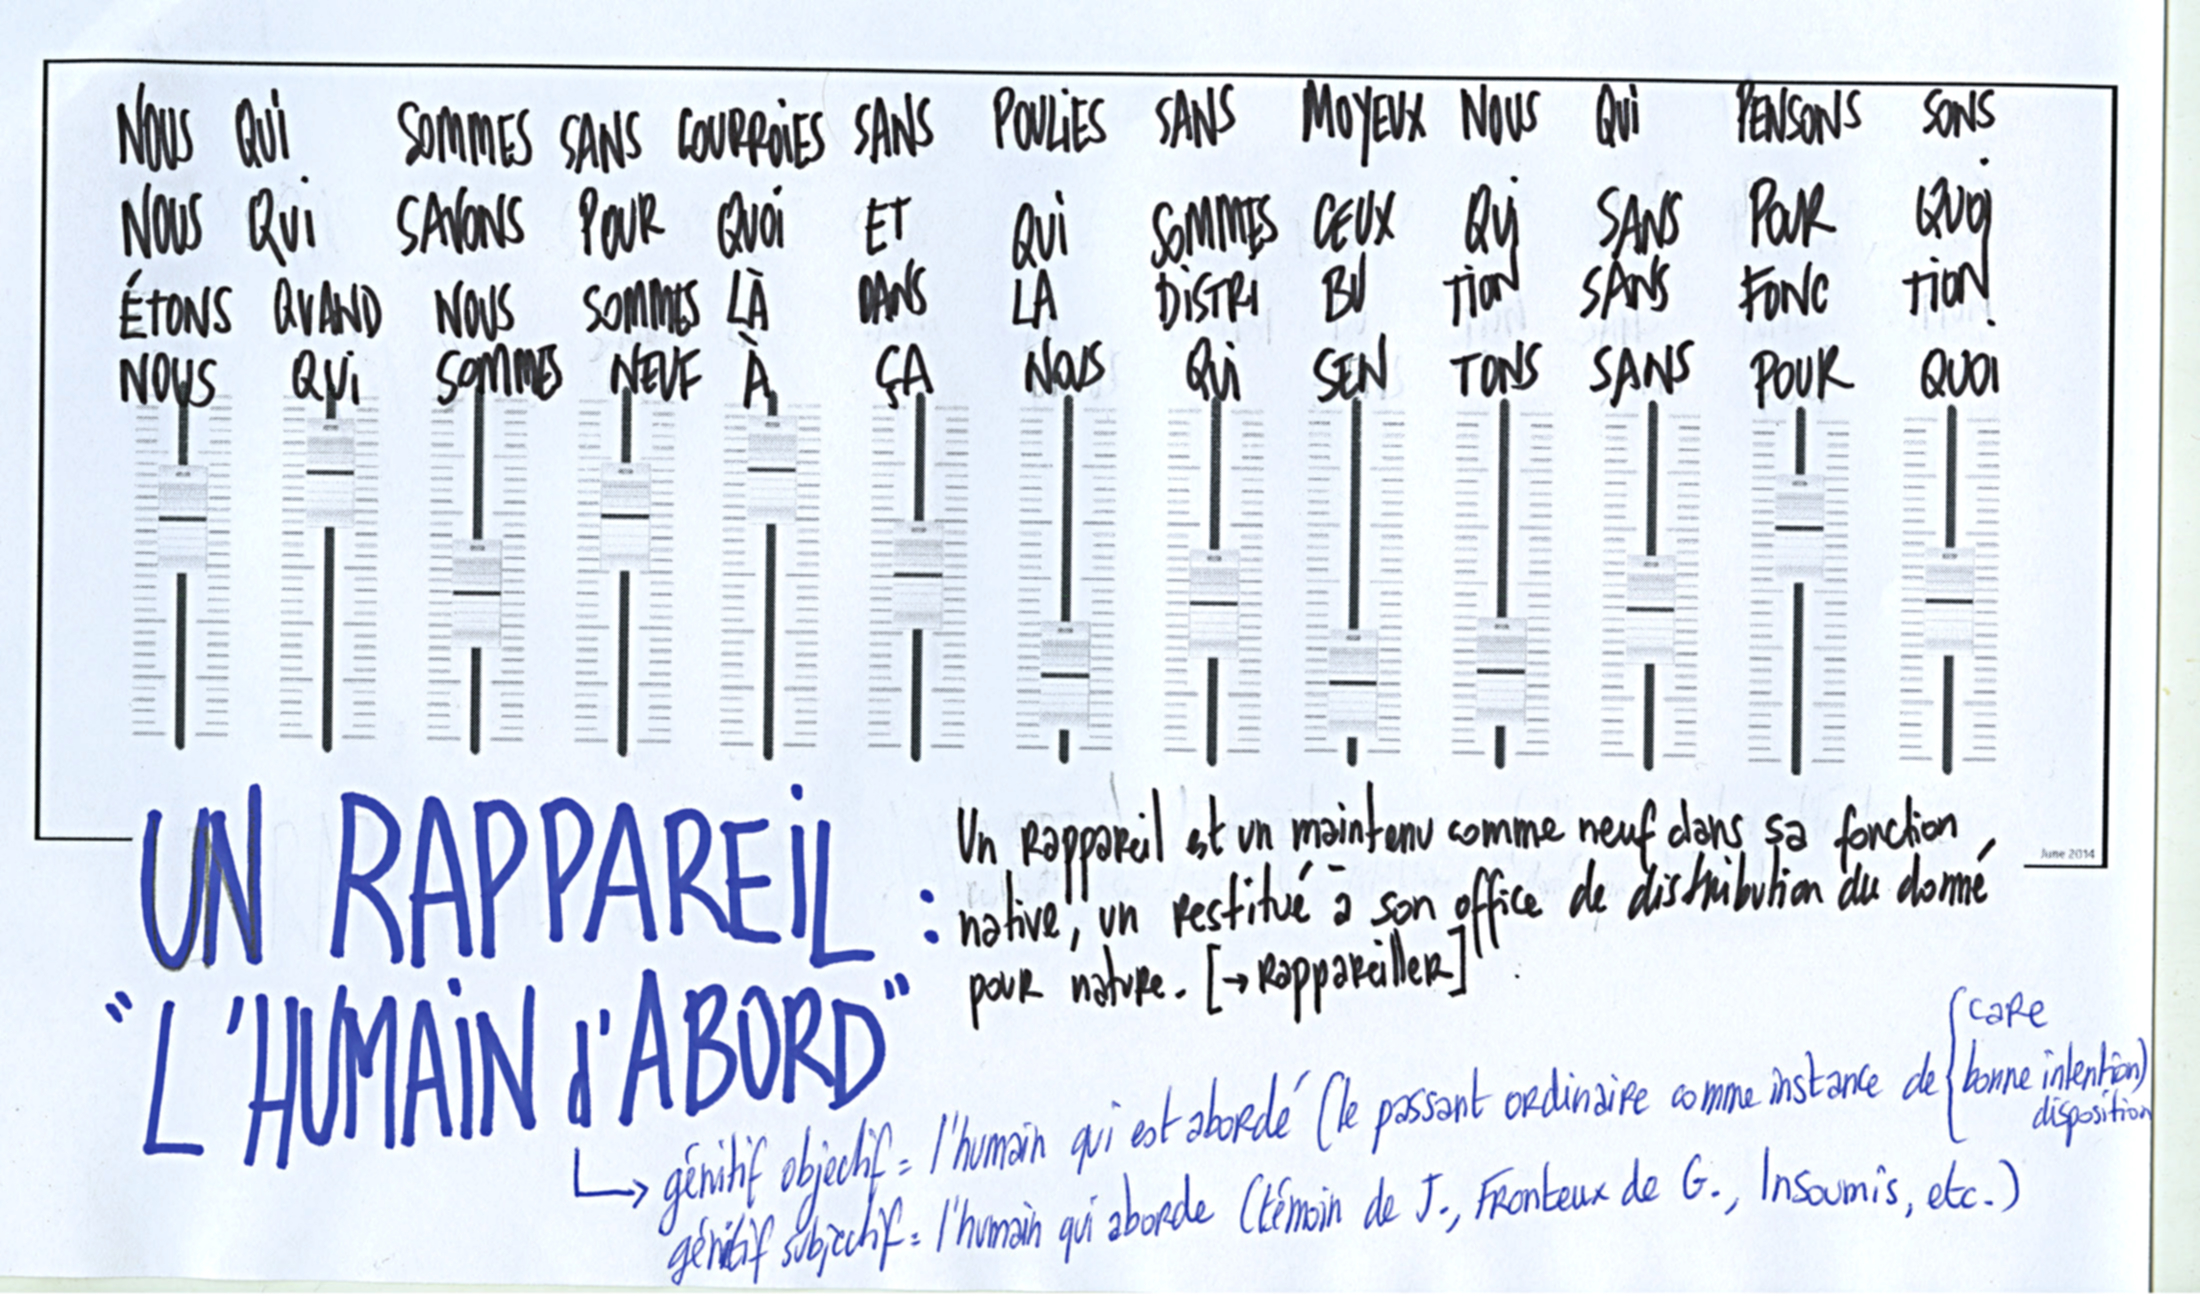 NOUS QUI SOMMES SANS COURROIES SANS POULIES SANS MOYEUX NOUS QUI PENSONS SONS
NOUS QUI SAVONS POUR QUOI ET QUI SOMMES CEUX QUI SANS POUR QUOI
ÉTONS QUAND NOUS SOMMES LÀ DANS LA DISTRI BU TION SANS FONC TION
NOUS QUI SOMMES NEUF À ÇA NOUS QUI SEN TONS SANS POUR QUOI
June 2014
UN RAPPAREIL :
"L'HUMAIN d'ABORD"
Un Rappareil est un maintenu comme neuf dans sa fonction
native, un restitué à son office de distribution du donné
pour nature. [→ Rappareiller]
génitif objectif = l'humain qui est abordé (le passant ordinaire comme instance de { care
bonne intention)
disposition
génitif subjectif = l'humain qui aborde (témoin de J., Fronteux de G., Insoumis, etc.)